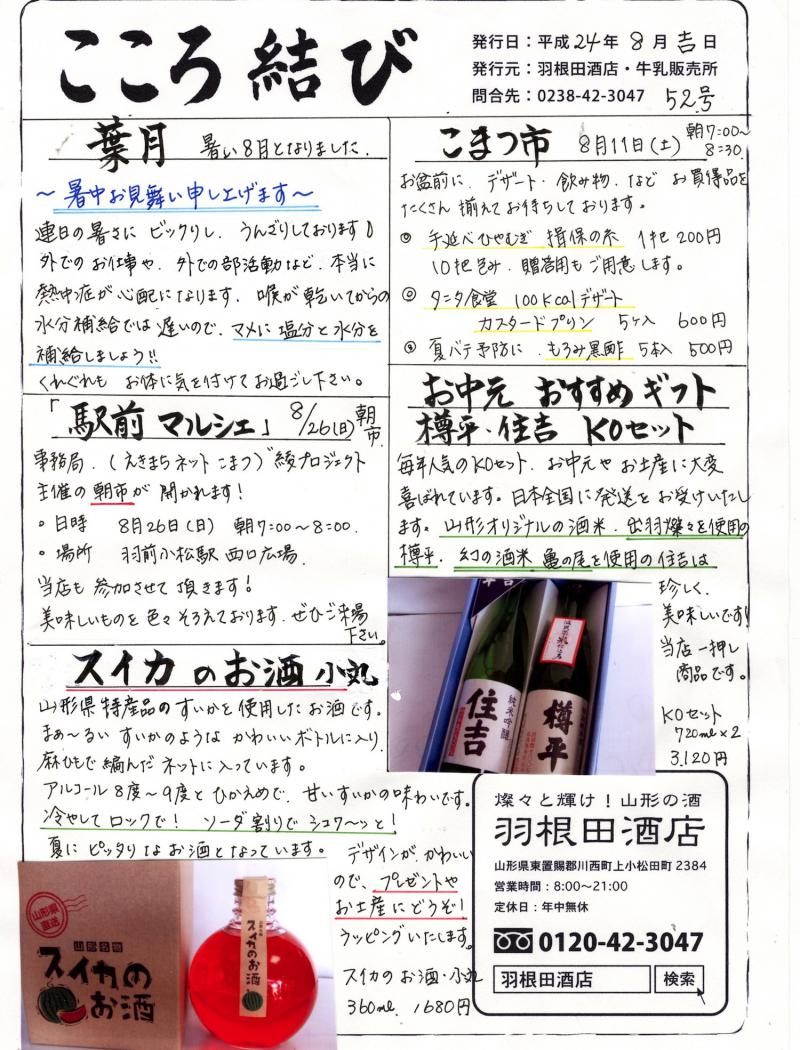 こころ結び
発行日：平成24年8月吉日
発行元：羽根田酒店・牛乳販売所
問合先：0238-42-3047 52号
葉月 暑い8月となりました.
～暑中お見舞い申し上げます～
連日の暑さに ビックリし、うんざりしております
外でのお仕事や、外での部活動など、本当に
熱中症が心配になります. 喉が乾いてからの
水分補給では遅いので、マメに塩分と水分を
補給しましょう!!
くれぐれも お体に気を付けてお過ごし下さい。
「駅前マルシェ」8/26(日)朝市
事務局.(えきまちネットこまつ)"綾プロジェクト
主催の朝市が 開かれます!
○日時 8月26日(日) 朝7:00～8:00.
○場所 羽前小松駅 西口広場.
当店も参加させて頂きます!
美味しいものを色々そろえております. ぜひご来場
下さい。
スイカのお酒 小丸
山形県特産品のすいかを使用したお酒です。
まぁ～るい すいかのような かわいいボトルに入り.
麻ひもで編んだネットに入っています。
アルコール8度～9度とひかえめで、甘いすいかの味わいです。
冷やしてロックで! ソーダ割りでシュワ～ッと!
夏にピッタリなお酒となっています。
デザインが、かわいい
ので、プレゼントや
お土産にどうぞ!
ラッピングいたします。
スイカのお酒・小丸
360ml. 1680円
山形県
直送
山形名物
スイカの
お酒
スイカのお酒
こまつ市 8月11日(土) 朝7:00～
8:30
お盆前に、デザート・飲み物、など お買得品を
たくさん揃えてお待ちしております。
◎ 手延べひやむぎ 揖保の糸 1把200円
10把包み、贈答用もご用意します。
◎ タニタ食堂 100Kcalデザート
カスタードプリン 5ヶ入 600円
◎ 夏バテ予防に、もろみ黒酢 5本入 500円
お中元 おすすめギフト
樽平・住吉 KOセット
毎年人気のKOセット、お中元やお土産に大変
喜ばれています。日本全国に発送をお受けいたし
ます。山形オリジナルの酒米、出羽燦々を使用の
樽平、幻の酒米 亀の尾を使用の住吉は
珍しく、
美味しいです!
当店一押し
商品です。
KOセット
720ml×2
3.120円
住吉
純米吟醸
住吉
樽平
燦々と輝け！山形の酒
羽根田酒店
山形県東置賜郡川西町上小松田町2384
営業時間：8:00～21:00
定休日：年中無休
0120-42-3047
羽根田酒店 検索